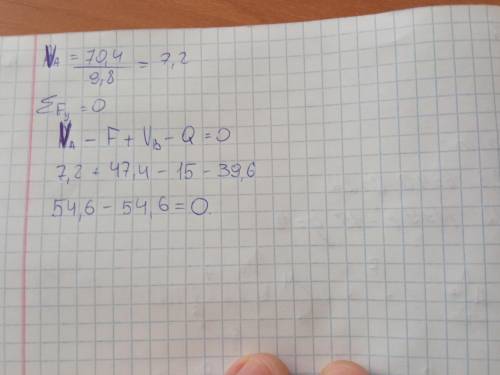 V_A = 70,4 / 9,8 = 7,2
ΣF_y = 0
V_A - F + V_B - Q = 0
7,2 + 47,4 - 15 - 39,6
54,6 - 54,6 = 0.